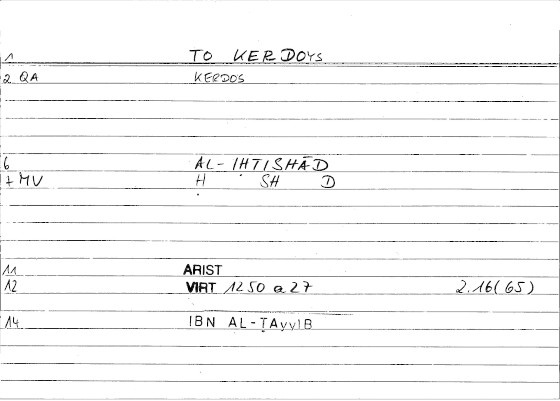 1 TO KERDOYS
2 QA KERDOS
6 AL-IḤTISHĀD
+ MV Ḥ SH D
11 ARIST
12 VIRT 1250 a 27 2.16(65)
14 IBN AL-ṬAyyIB